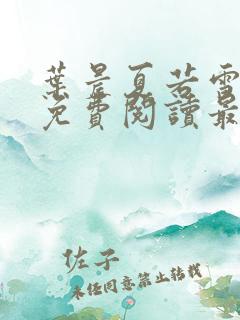 葉晨夏若雪
免費閱讀最
佐子
未经同意禁止转载